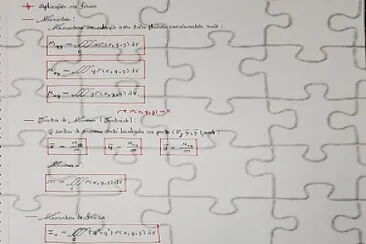 Aplicações na física
— Momentos:
Momentos em relação aos três planos coordenados são:
M_yz = ∭ x ρ(x,y,z) dV
M_xz = ∭ y ρ(x,y,z) dV
M_xy = ∭ z ρ(x,y,z) dV
ρ(x,y,z) = K
— Centro de Massa (Centroide):
O centro de massa está localizado no ponto (x̄, ȳ, z̄), onde:
x̄ = M_yz/m ȳ = M_xz/m z̄ = M_xy/m
m = ∭ ρ(x,y,z) dV
— Momentos de Inércia
I_x = ∭ (y²+z²) ρ(x,y,z) dV